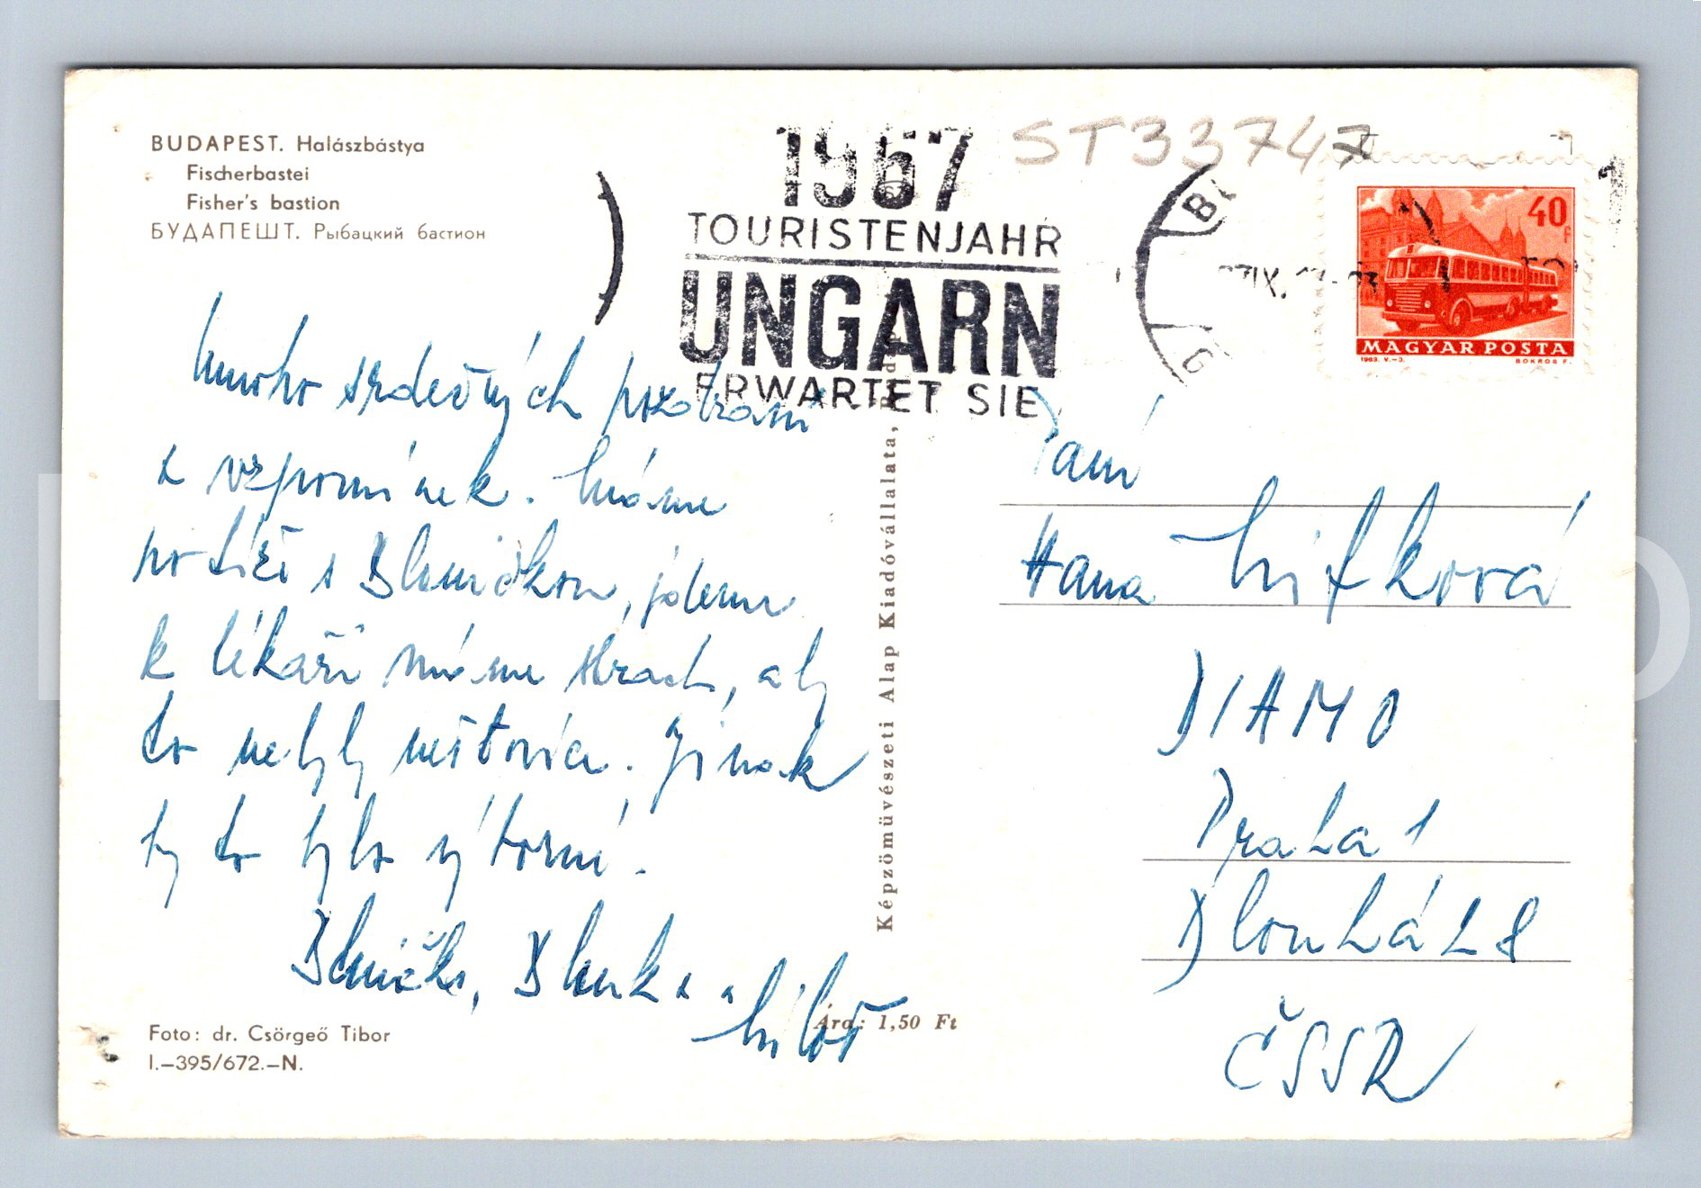 BUDAPEST. Halászbástya
Fischerbastei
Fisher's bastion
БУДАПЕШТ. Рыбацкий бастион
1967
TOURISTENJAHR
UNGARN
ERWARTET SIE
ST33747
BU
40f
MAGYAR POSTA
1963. V.-3.
BOKROS F.
Mnoho srdečných pozdravů
a vzpomínek. Máme
potíže s Blaničkou, jdeme
k lékaři máme strach, aby
to nebyly neštovice. Jinak
by to bylo výborné.
Blanička, Blanka a
Miloš
Képzőművészeti Alap Kiadóvállalata,
Ára: 1,50 Ft
Foto: dr. Csörgeő Tibor
I.—395/672.—N.
Paní
Hana
DIAMO
Praha 1
Dlouhá 28
ČSSR